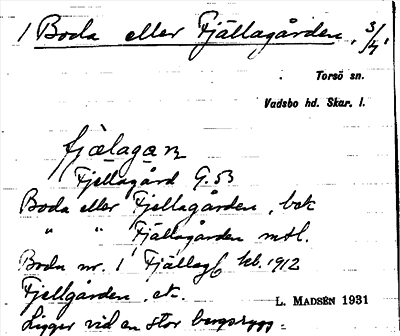 1 Boda eller Fjällagården, 3/4
Torsö sn.
Vadsbo hd. Skar. l.
fjælagaɳ
Fjellagård G.53
Boda eller Fjellagården, bek
" " Fjällagården mtl.
Boda nr. 1 Fjällag kb. 1912
Fjellgården, etc.
L. MADSÉN 1931
Ligger vid en stor bergsrygg.